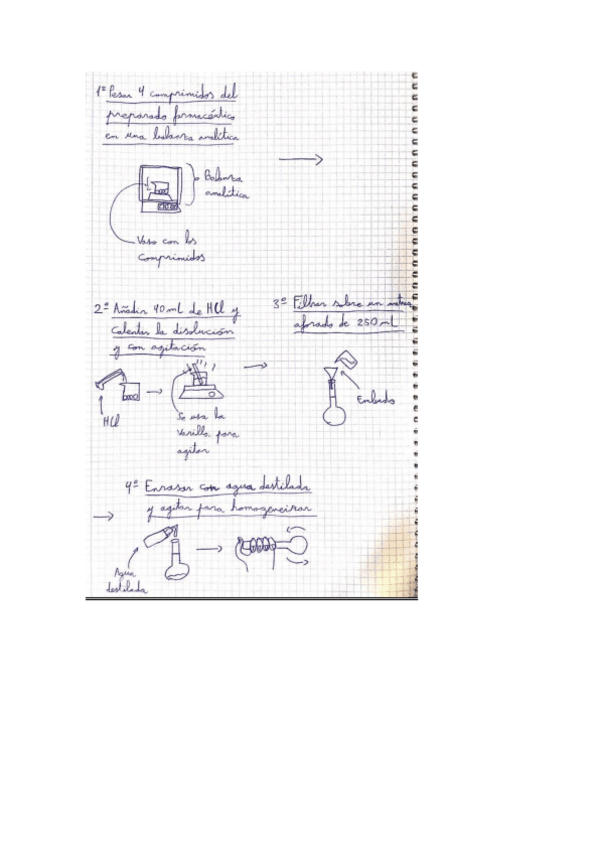 1º Pesar 4 comprimidos del
preparado farmacéutico
en una balanza analítica
Balanza
analítica
Vaso con los
comprimidos
2º Añadir 40 ml de HCl y
calentar la disolución
y con agitación
HCl
Se usa la
varilla para
agitar
3º Filtrar sobre un matraz
aforado de 250 ml
Embudo
4º Enrasar con agua destilada
y agitar para homogeneizar
Agua
destilada